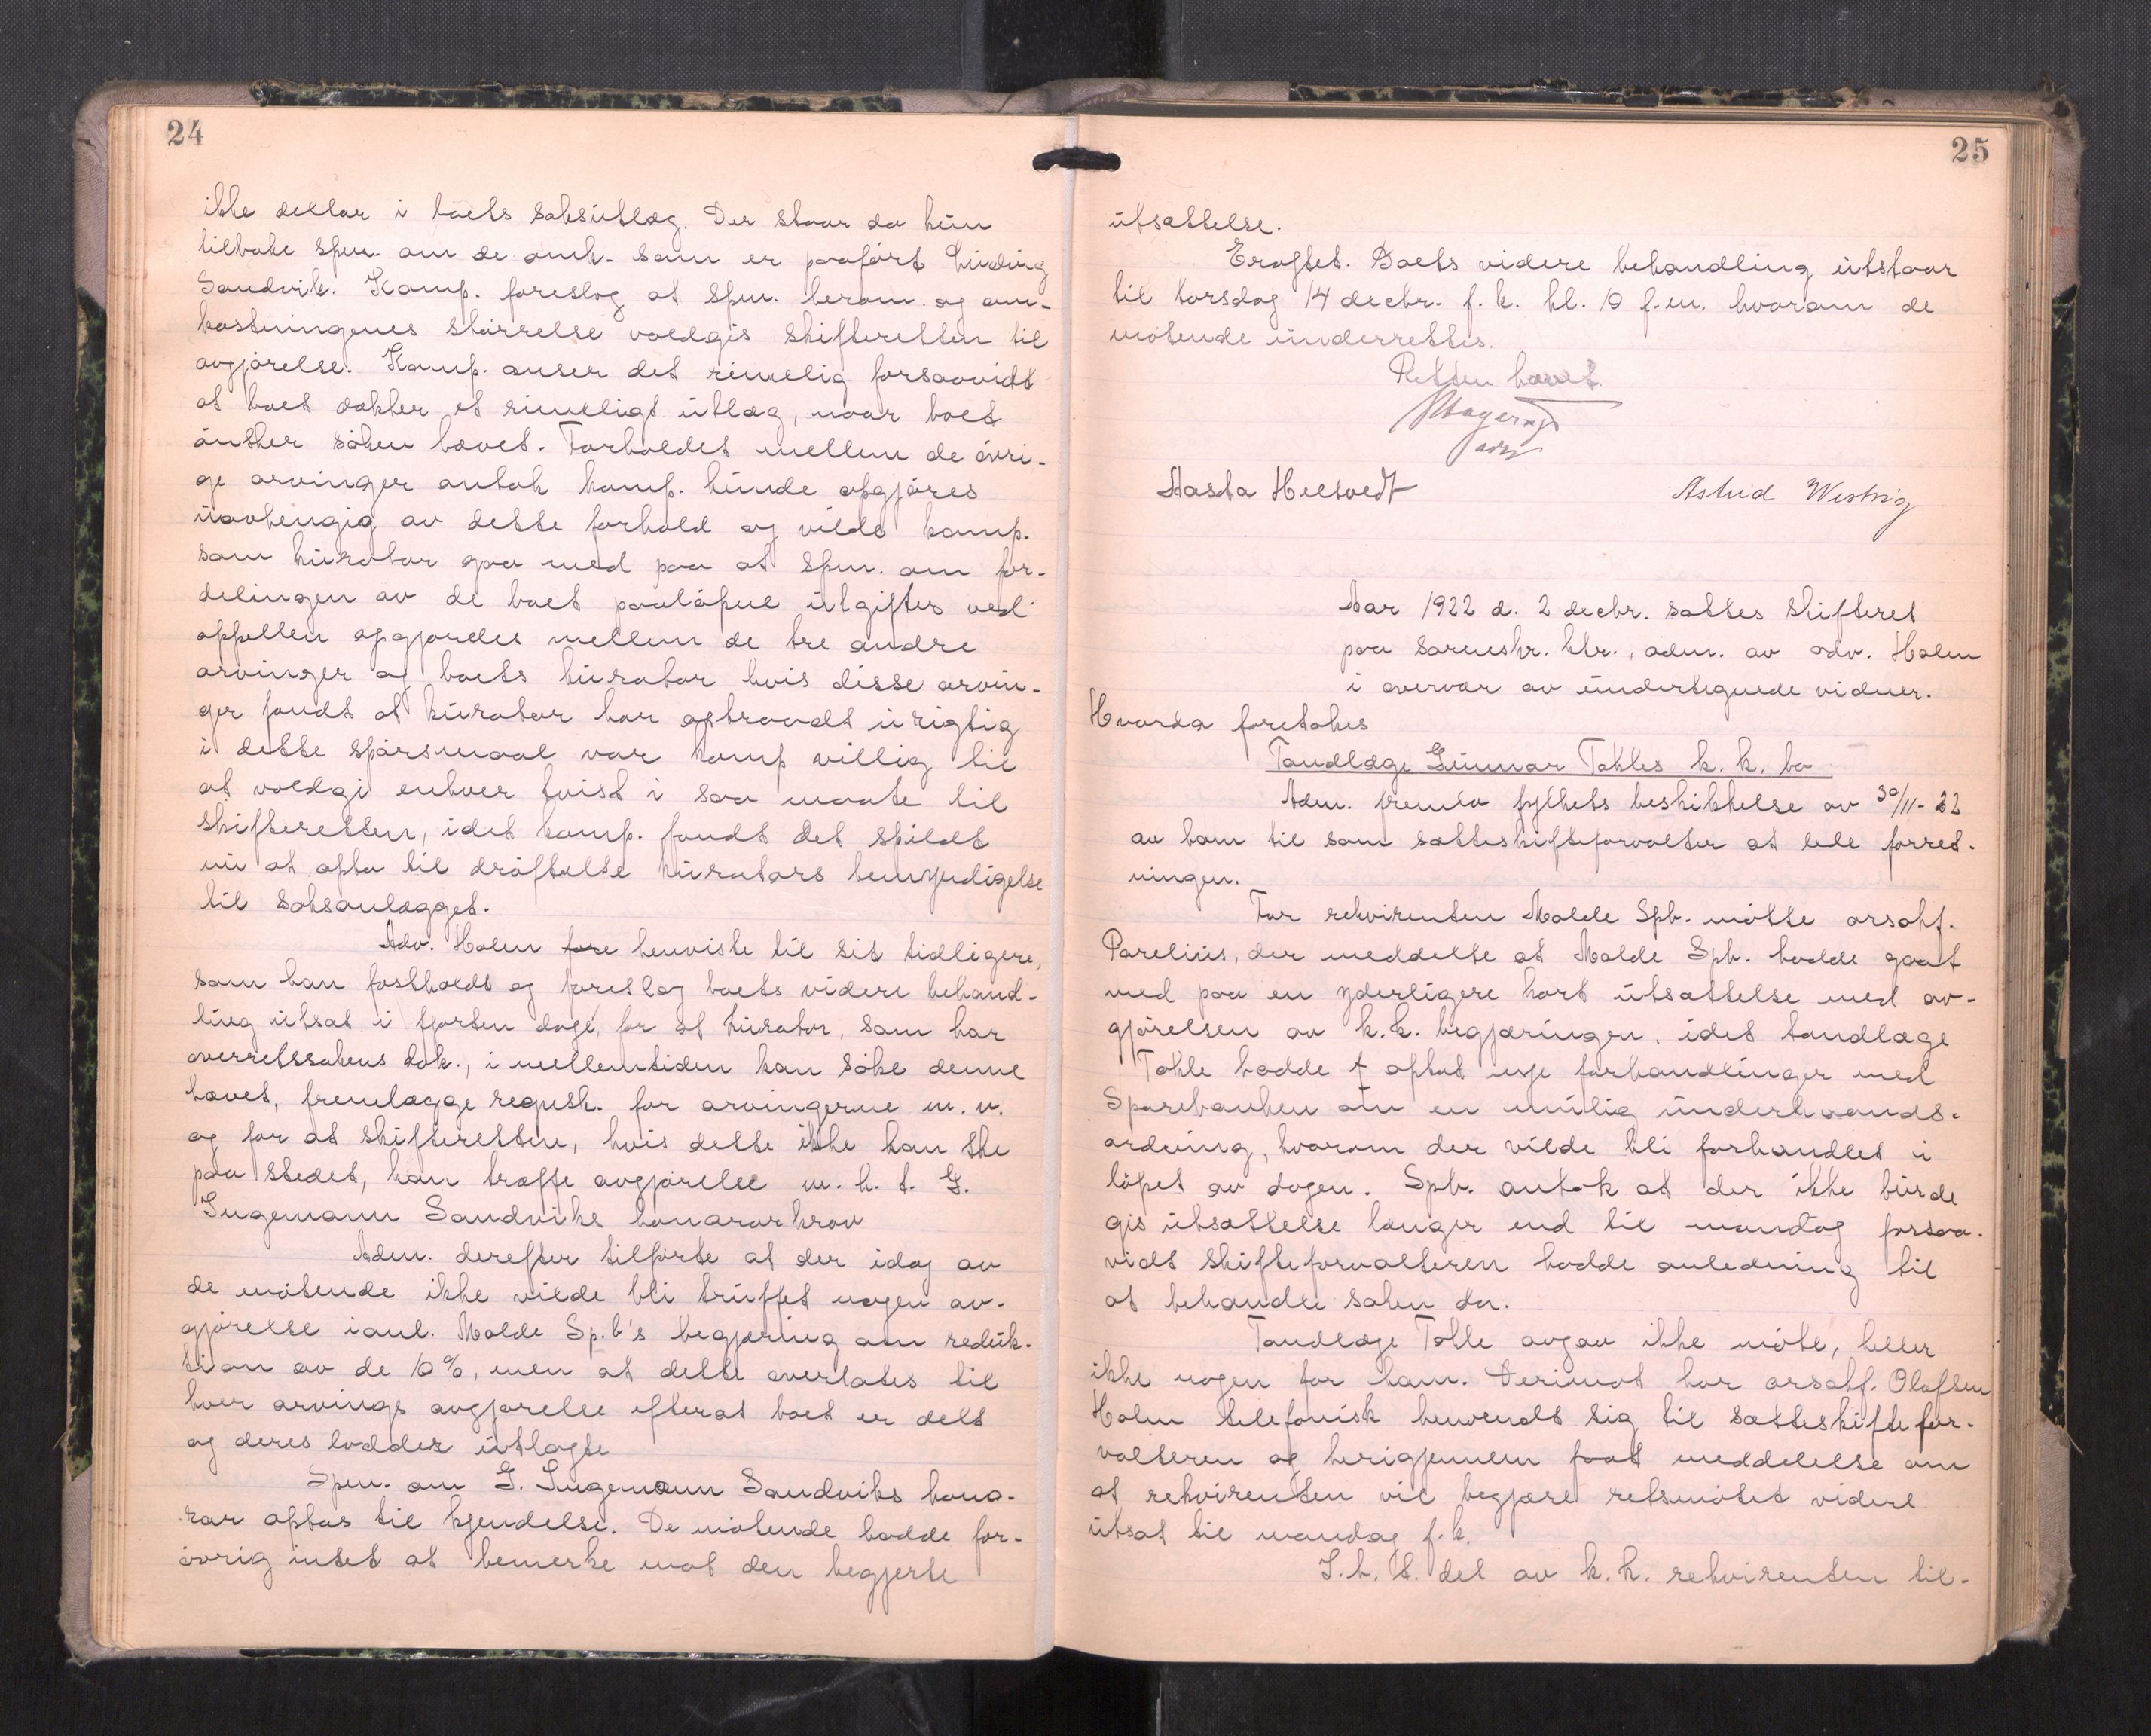 24
ikke deltar i boets saksutlæg. Der staar da kun
tilbake spm. om de omk. som er paaført Huding
Sandvik. Komp. foreslog at spm. herom og om-
kostningenes størrelse voldgis skifteretten til
avgjørelse. Komp. anser det rimelig forsaavidt
at boet dækker et rimeligt utlæg, naar boet
ønsker saken hævet. Forholdet mellem de øvri-
ge arvinger antok komp. kunde opgjøres
uavhengig av dette forhold og vilde komp.
som kurator gaa med paa at spm. om for-
delingen av de boet paaløpne utgifter ved
appellen opgjordes mellem de tre andre
arvinger og boets kurator hvis disse arvin-
ger fandt at kurator har optraadt urigtig
i dette spørsmaal var komp villig til
at voldgi enhver tvist i saa maate til
skifteretten, idet komp. fandt det spildt
nu at opta til drøftelse kurators bemyndigelse
til saksanlægget.
Adv. Holm fore henviste til sit tidligere,
som han fastholdt og foreslog boets videre behand-
ling utsat i fjorten dage, for at kurator, som har
overretssakens dok., i mellemtiden kan søke denne
hævet, fremlægge regnsk. for arvingerne m. v.
og for at skifteretten, hvis dette ikke kan ske
paa stedet, kan træffe avgjørelse m. h. t. G.
Ingemann Sandviks honorarkrav
Adm. derefter tilførte at der idag av
de møtende ikke vilde bli truffet nogen av-
gjørelse i anl. Molde Sp.b's begjæring om reduk-
tion av de 10%, men at dette overlates til
hver arvings avgjørelse efterat boet er delt
og deres lodder utlagte
Spm. om G. Ingemann Sandviks hono-
rar optas til kjendelse. De møtende hadde for-
øvrig intet at bemerke mot den begjærte
25
utsættelse.
Eragtet. Boets videre behandling utstaar
til torsdag 14 decbr. f. k. kl. 10 f.m. hvorom de
møtende underrettes.
Retten hævet.
Aasta Heltvedt Astrid Westvig
Aar 1922 d. 2 decbr. sattes skifteret
paa sorenskr. ktr., adm. av adv. Holm
i overvær av undertegnede vidner.
Hvorda foretokes
Tandlæge Gunnar Tokles k. k. bo
Adm. fremla fylkets beskikkelse av 30/11-22
av ham til som sætteskifteforvalter at lede forret-
ningen.
For rekvirenten Molde Spb. møtte orsakf.
Parelius, der meddelte at Molde Spb. hadde gaat
med paa en yderligere kort utsættelse med av-
gjørelsen av k.k. begjæringen, idet tandlæge
Tokle hadde optat nye forhandlinger med
Sparebanken om en mulig underhaands-
ordning, hvorom der vilde bli forhandlet i
løpet av dagen. Spb. antok at der ikke burde
gis utsættelse længer end til mandag forsaa-
vidt skifteforvalteren hadde anledning til
at behandle saken da.
Tandlæge Tokle avgav ikke møte, heller
ikke nogen for ham. Derimot har orsakf. Olafsen
Holm telefonisk henvendt sig til sætteskiftefor-
valteren og herigjennem faat meddelelse om
at rekvirenten vil begjære retsmøtet videre
utsat til mandag f.k.
I. h. t. del av k.k. rekvirenten til-